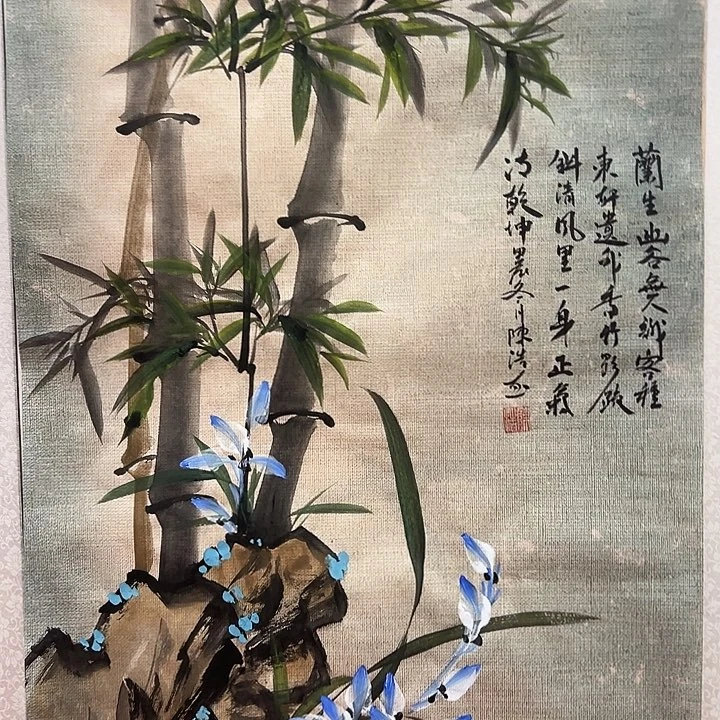 蘭生幽谷無人識客種
東軒遺我香竹影敲
斜清風里一身正氣
清乾坤 冬月陳浩画